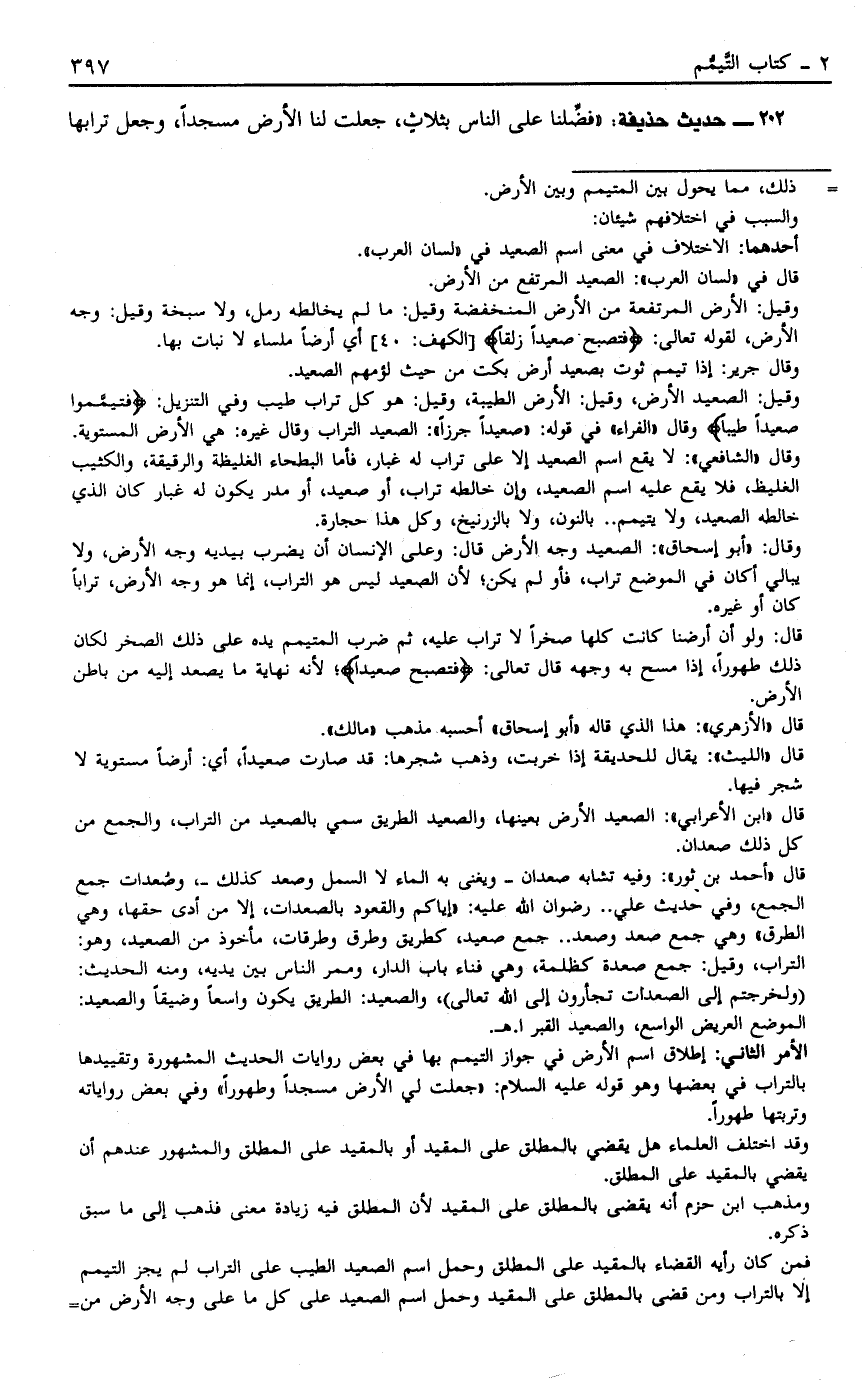 ٢ ـ كتاب التَّيمُّم
٣٩٧
٢٠٢ ــ حديث حذيفة: «فضِّلنا على الناس بثلاثٍ، جعلت لنا الأرض مسجداً، وجعل ترابها
= ذلك، مما يحول بين المتيمم وبين الأرض.
والسبب في اختلافهم شيئان:
أحدهما: الاختلاف في معنى اسم الصعيد في «لسان العرب».
قال في «لسان العرب»: الصعيد المرتفع من الأرض.
وقيل: الأرض المرتفعة من الأرض المنخفضة وقيل: ما لم يخالطه رمل، ولا سبخة وقيل: وجه
الأرض، لقوله تعالى: ﴿فتصبح صعيداً زلقاً﴾ [الكهف: ٤٠] أي أرضاً ملساء لا نبات بها.
وقال جرير: إذا تيمم ثوت بصعيد أرض بكت من حيث لؤمهم الصعيد.
وقيل: الصعيد الأرض، وقيل: الأرض الطيبة، وقيل: هو كل تراب طيب وفي التنزيل: ﴿فتيمَّموا
صعيداً طيباً﴾ وقال «الفراء» في قوله: «صعيداً جرزاً»: الصعيد التراب وقال غيره: هي الأرض المستوية.
وقال «الشافعي»: لا يقع اسم الصعيد إلا على تراب له غبار، فأما البطحاء الغليظة والرقيقة، والكثيب
الغليظ، فلا يقع عليه اسم الصعيد، وإن خالطه تراب، أو صعيد، أو مدر يكون له غبار كان الذي
خالطه الصعيد، ولا يتيمم.. بالنون، ولا بالزرنيخ، وكل هذا حجارة.
وقال: «أبو إسحاق»: الصعيد وجه الأرض قال: وعلى الإنسان أن يضرب بيديه وجه الأرض، ولا
يبالي أكان في الموضع تراب، فأو لم يكن؛ لأن الصعيد ليس هو التراب، إنما هو وجه الأرض، تراباً
كان أو غيره.
قال: ولو أن أرضنا كانت كلها صخراً لا تراب عليه، ثم ضرب المتيمم يده على ذلك الصخر لكان
ذلك طهوراً، إذا مسح به وجهه قال تعالى: ﴿فتصبح صعيداً﴾؛ لأنه نهاية ما يصعد إليه من باطن
الأرض.
قال «الأزهري»: هذا الذي قاله «أبو إسحاق» أحسبه مذهب «مالك».
قال «الليث»: يقال للحديقة إذا خربت، وذهب شجرها: قد صارت صعيداً، أي: أرضاً مستوية لا
شجر فيها.
قال «ابن الأعرابي»: الصعيد الأرض بعينها، والصعيد الطريق سمي بالصعيد من التراب، والجمع من
كل ذلك صعدان.
قال «أحمد بن ثور»: وفيه تشابه صعدان ـ ويغنى به الماء لا السمل وصعد كذلك ـ، وصُعدات جمع
الجمع، وفي حديث علي.. رضوان الله عليه: «إياكم والقعود بالصعدات، إلا من أدى حقها، وهي
الطرق» وهي جمع صعد وصعد.. جمع صعيد، كطريق وطرق وطرقات، مأخوذ من الصعيد، وهو:
التراب، وقيل: جمع صعدة كظلمة، وهي فناء باب الدار، وممر الناس بين يديه، ومنه الحديث:
(ولخرجتم إلى الصعدات تجأرون إلى الله تعالى)، والصعيد: الطريق يكون واسعاً وضيقاً والصعيد:
الموضع العريض الواسع، والصعيد القبر ا.هـ.
الأمر الثاني: إطلاق اسم الأرض في جواز التيمم بها في بعض روايات الحديث المشهورة وتقييدها
بالتراب في بعضها وهو قوله عليه السلام: «جعلت لي الأرض مسجداً وطهوراً» وفي بعض رواياته
وتربتها طهوراً.
وقد اختلف العلماء هل يقضي بالمطلق على المقيد أو بالمقيد على المطلق والمشهور عندهم أن
يقضي بالمقيد على المطلق.
ومذهب ابن حزم أنه يقضى بالمطلق على المقيد لأن المطلق فيه زيادة معنى فذهب إلى ما سبق
ذكره.
فمن كان رأيه القضاء بالمقيد على المطلق وحمل اسم الصعيد الطيب على التراب لم يجز التيمم
إلا بالتراب ومن قضى بالمطلق على المقيد وحمل اسم الصعيد على كل ما على وجه الأرض من=